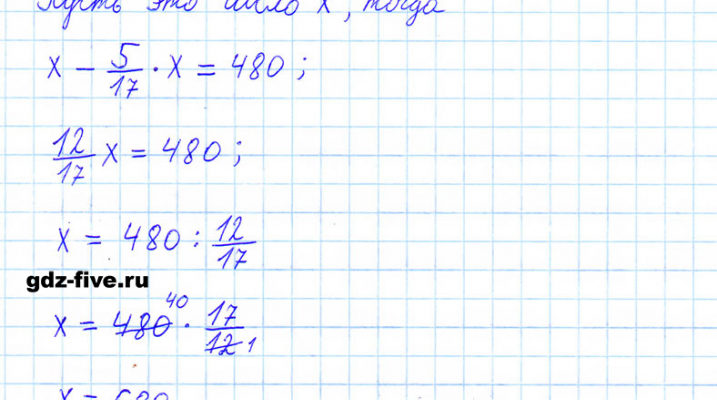 Пусть это число x, тогда
x - 5/17 · x = 480;
12/17 x = 480;
x = 480 : 12/17
gdz-five.ru
x = 480 40 · 17/12 1
x = 680